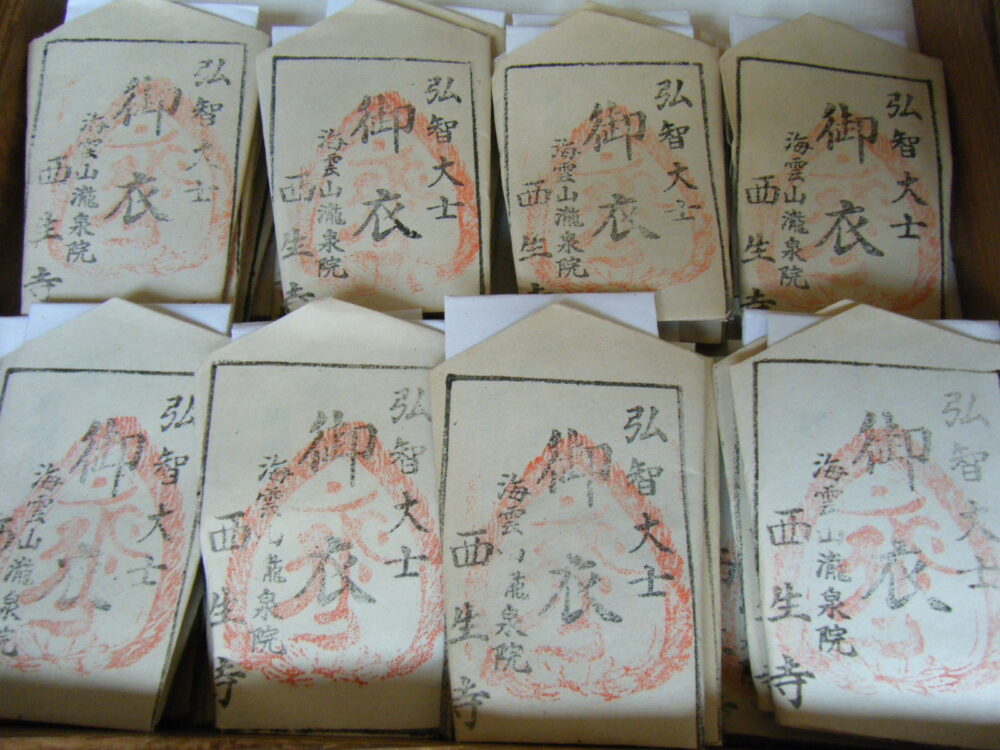 弘智大士
御衣
海雲山瀧泉院
西生寺
弘智大士
御衣
海雲山瀧泉院
西生寺
弘智大士
御衣
海雲山瀧泉院
西生
弘智大士
御衣
海雲山瀧泉院
西生寺
弘智大士
御衣
海雲山瀧泉院
西
弘智大士
御衣
海雲山瀧泉院
西生寺
弘智大士
御衣
海雲山瀧泉院
西生寺
弘智大士
御衣
海雲山瀧泉院
西生寺